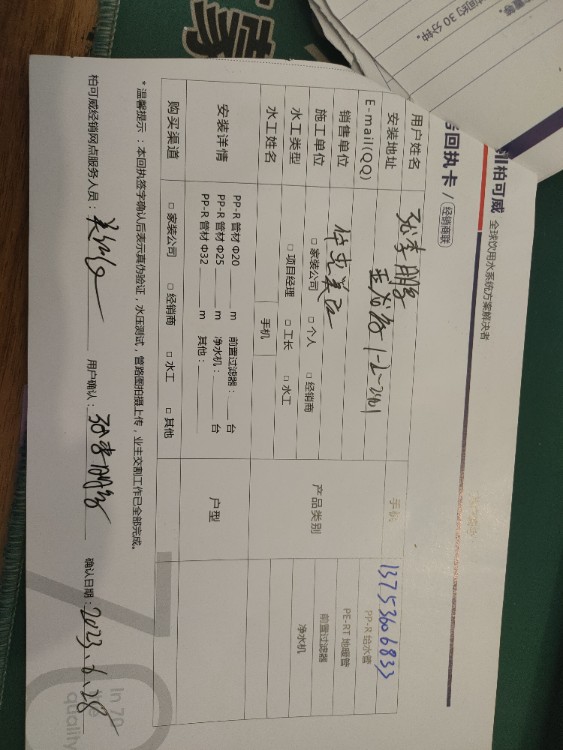 柏可威 全球饮用水系统方案解决者
回执卡 / 经销商联
用户姓名 张李鹏 手机 13753606833
安装地址 1-2-2401
E-mail(QQ)
销售单位
施工单位 □ 家装公司 □ 个人 □ 经销商
水工类型 □ 项目经理 □ 工长 □ 水工
水工姓名 手机
产品类别 PP-R 给水管
PE-RT 地暖管
前置过滤器
净水机
安装详情 PP-R 管材 Φ20 m 前置过滤器: 台
PP-R 管材 Φ25 m 净水机: 台
PP-R 管材 Φ32 m 其他:
户型
购买渠道 □ 家装公司 □ 经销商 □ 水工 □ 其他
* 温馨提示:本回执签字确认后表示真伪验证,水压测试,管路图拍摄上传,业主交割工作已全部完成。
柏可威经销网点服务人员: 用户确认: 张李鹏 确认日期: 2023.6.28
In 70
quality
的 30 分钟。